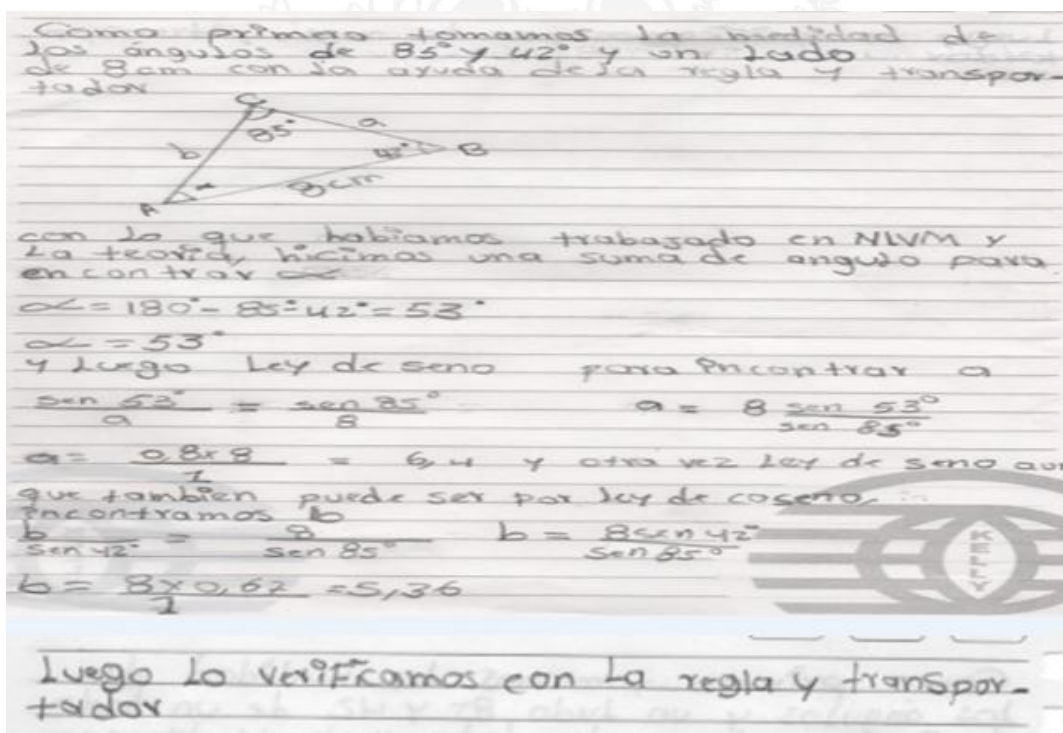 Como primero tomamos la medidad de
los ángulos de 85° y 42° y un lado
de 8cm con la ayuda de la regla y transpor-
tador
C
85°
a
b
42°
B
8cm
A
con lo que habiamos trabajado en NLVM y
La teoría, hicimos una suma de angulo para
encontrar ∝
∝ = 180° - 85° - 42° = 53°
∝ = 53°
y Luego Ley de seno para encontrar a
sen 53° / a = sen 85° / 8 a = 8 sen 53° / sen 85°
a = 0,8x8 / 1 = 6,4 y otra vez Ley de seno aun
que tambien puede ser por ley de coseno,
encontramos b
b / sen 42° = 8 / sen 85° b = 8sen 42° / sen 85°
b = 8x0,67 / 1 = 5,36
KELLY
Luego Lo verificamos con La regla y transpor-
tador